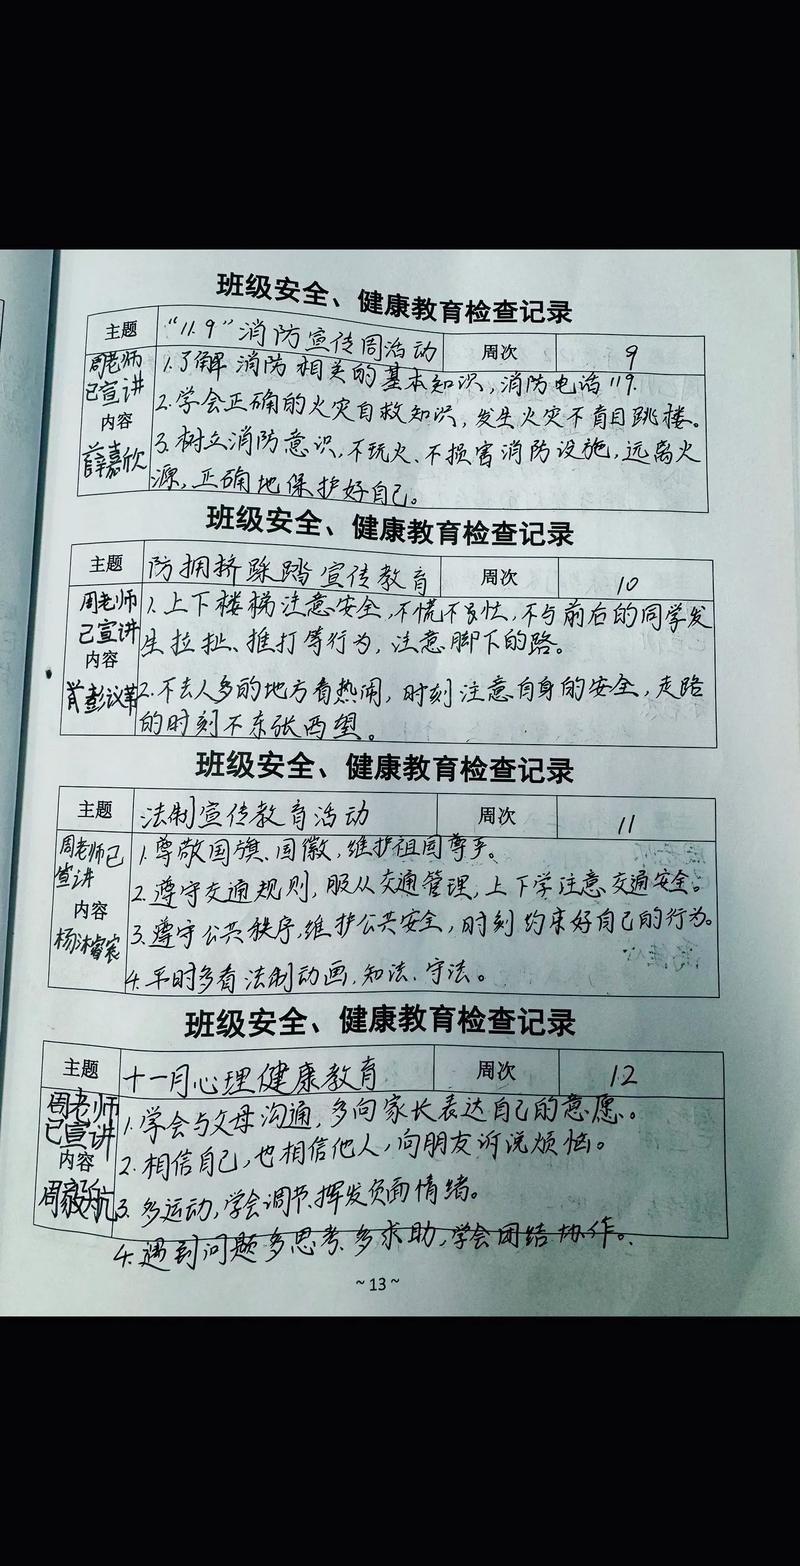 班级安全、健康教育检查记录
主题 “11.9”消防宣传周活动 周次 9
周老师
已宣讲
内容
薛嘉欣
1.了解消防相关的基本知识,消防电话119.
2.学会正确的火灾自救知识,发生火灾不盲目跳楼。
3.树立消防意识,不玩火、不损害消防设施,远离火
源,正确地保护好自己。
班级安全、健康教育检查记录
主题 防拥挤踩踏宣传教育 周次 10
周老师
已宣讲
内容
1.上下楼梯注意安全,不慌不急忙,不与前后的同学发
生拉扯、推打等行为,注意脚下的路。
2.不去人多的地方看热闹,时刻注意自身的安全,走路
的时刻不东张西望。
班级安全、健康教育检查记录
主题 法制宣传教育活动 周次 11
周老师已
宣讲
内容
1.尊敬国旗、国徽,维护祖国尊严。
2.遵守交通规则,服从交通管理,上下学注意交通安全。
3.遵守公共秩序,维护公共安全,时刻约束好自己的行为。
4.平时多看法制动画,知法、守法。
班级安全、健康教育检查记录
主题 十一月心理健康教育 周次 12
周老师
已宣讲
内容
周毅航
1.学会与父母沟通,多向家长表达自己的意愿。
2.相信自己,也相信他人,向朋友诉说烦恼。
3.多运动,学会调节、挥发负面情绪。
4.遇到问题多思考、多求助,学会团结协作。
~13~